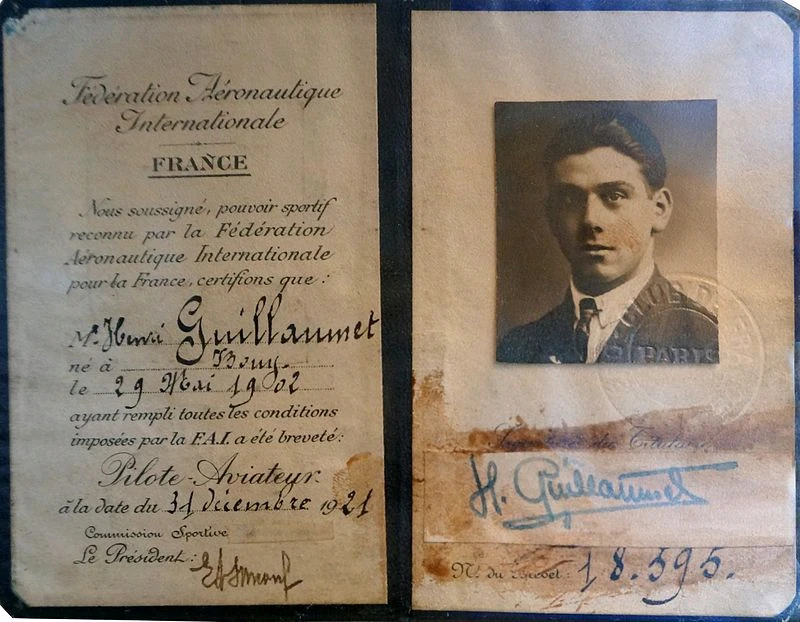 Fédération Aéronautique
Internationale
FRANCE
Nous soussigné, pouvoir sportif
reconnu par la Fédération
Aéronautique Internationale
pour la France, certifions que :
Mr Henri Guillaumet
né à Bouy.
le 29 Mai 1902
ayant rempli toutes les conditions
imposées par la F.A.I. a été breveté :
Pilote-Aviateur.
à la date du 31 décembre 1921
Commission Sportive
Le Président :
CLUB
PARIS
du Titulaire
H. Guillaumet
No. du Brevet : 18.595.